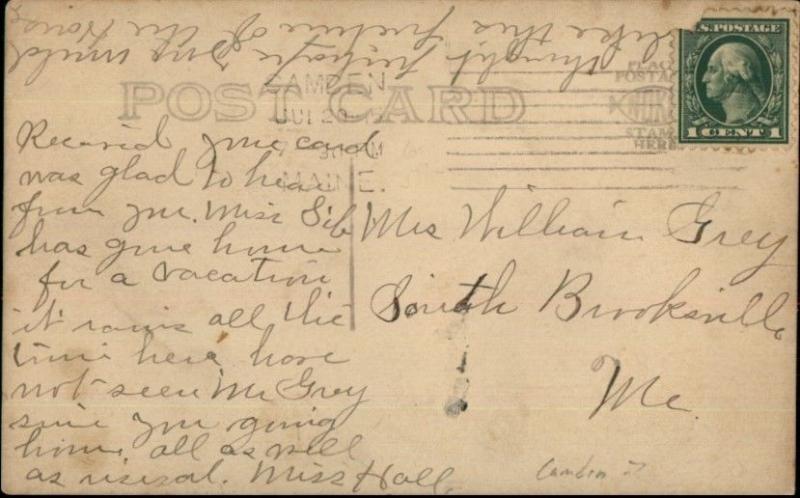 thought perhaps you would
like this picture of the
POST CARD
CAMDEN
MAINE.
PLACE
POSTAGE
STAMP
HERE
U.S. POSTAGE
1 CENT 1
Received your card
was glad to hear
from you. Miss Sib
has gone home
for a vacation
it rains all the
time here have
not seen Mr Grey
since your going
home all as well
as usual. Miss Hall.
Mrs William Grey
South Brooksville
Me.
Camden